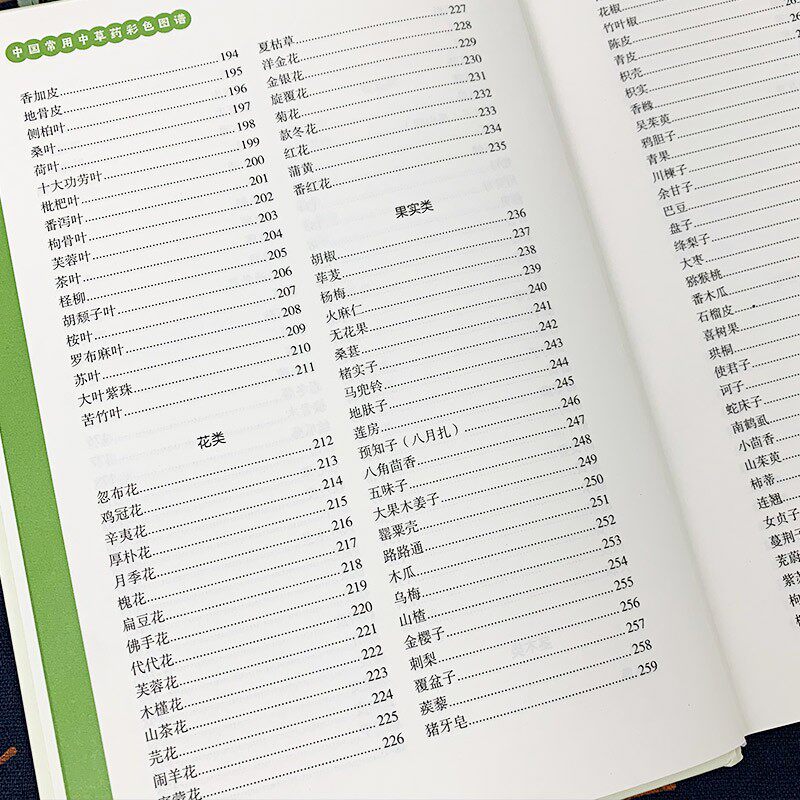 中国常用中草药彩色图谱
香加皮 194
地骨皮 195
侧柏叶 196
桑叶 197
荷叶 198
十大功劳叶 199
枇杷叶 200
番泻叶 201
枸骨叶 202
芙蓉叶 203
茶叶 204
柽柳 205
胡颓子叶 206
桉叶 207
罗布麻叶 208
苏叶 209
大叶紫珠 210
苦竹叶 211
花类
忽布花 212
鸡冠花 213
辛夷花 214
厚朴花 215
月季花 216
槐花 217
扁豆花 218
佛手花 219
代代花 220
芙蓉花 221
木槿花 222
山茶花 223
芫花 224
闹羊花 225
密蒙花 226
夏枯草 227
洋金花 228
金银花 229
旋覆花 230
菊花 231
款冬花 232
红花 233
蒲黄 234
番红花 235
果实类
胡椒 236
荜茇 237
杨梅 238
火麻仁 239
无花果 240
桑葚 241
楮实子 242
马兜铃 243
地肤子 244
莲房 245
预知子（八月扎） 246
八角茴香 247
五味子 248
大果木姜子 249
罂粟壳 250
路路通 251
木瓜 252
乌梅 253
山楂 254
金樱子 255
刺梨 256
覆盆子 257
蒺藜 258
猪牙皂 259
花椒
竹叶椒
陈皮
青皮
枳壳
枳实
香橼
吴茱萸
鸦胆子
青果
川楝子
余甘子
巴豆
盘子
绛梨子
大枣
猕猴桃
番木瓜
石榴皮
喜树果
珙桐
使君子
诃子
蛇床子
南鹤虱
小茴香
山茱萸
柿蒂
连翘
女贞子
蔓荆子
茺蔚
紫
枸